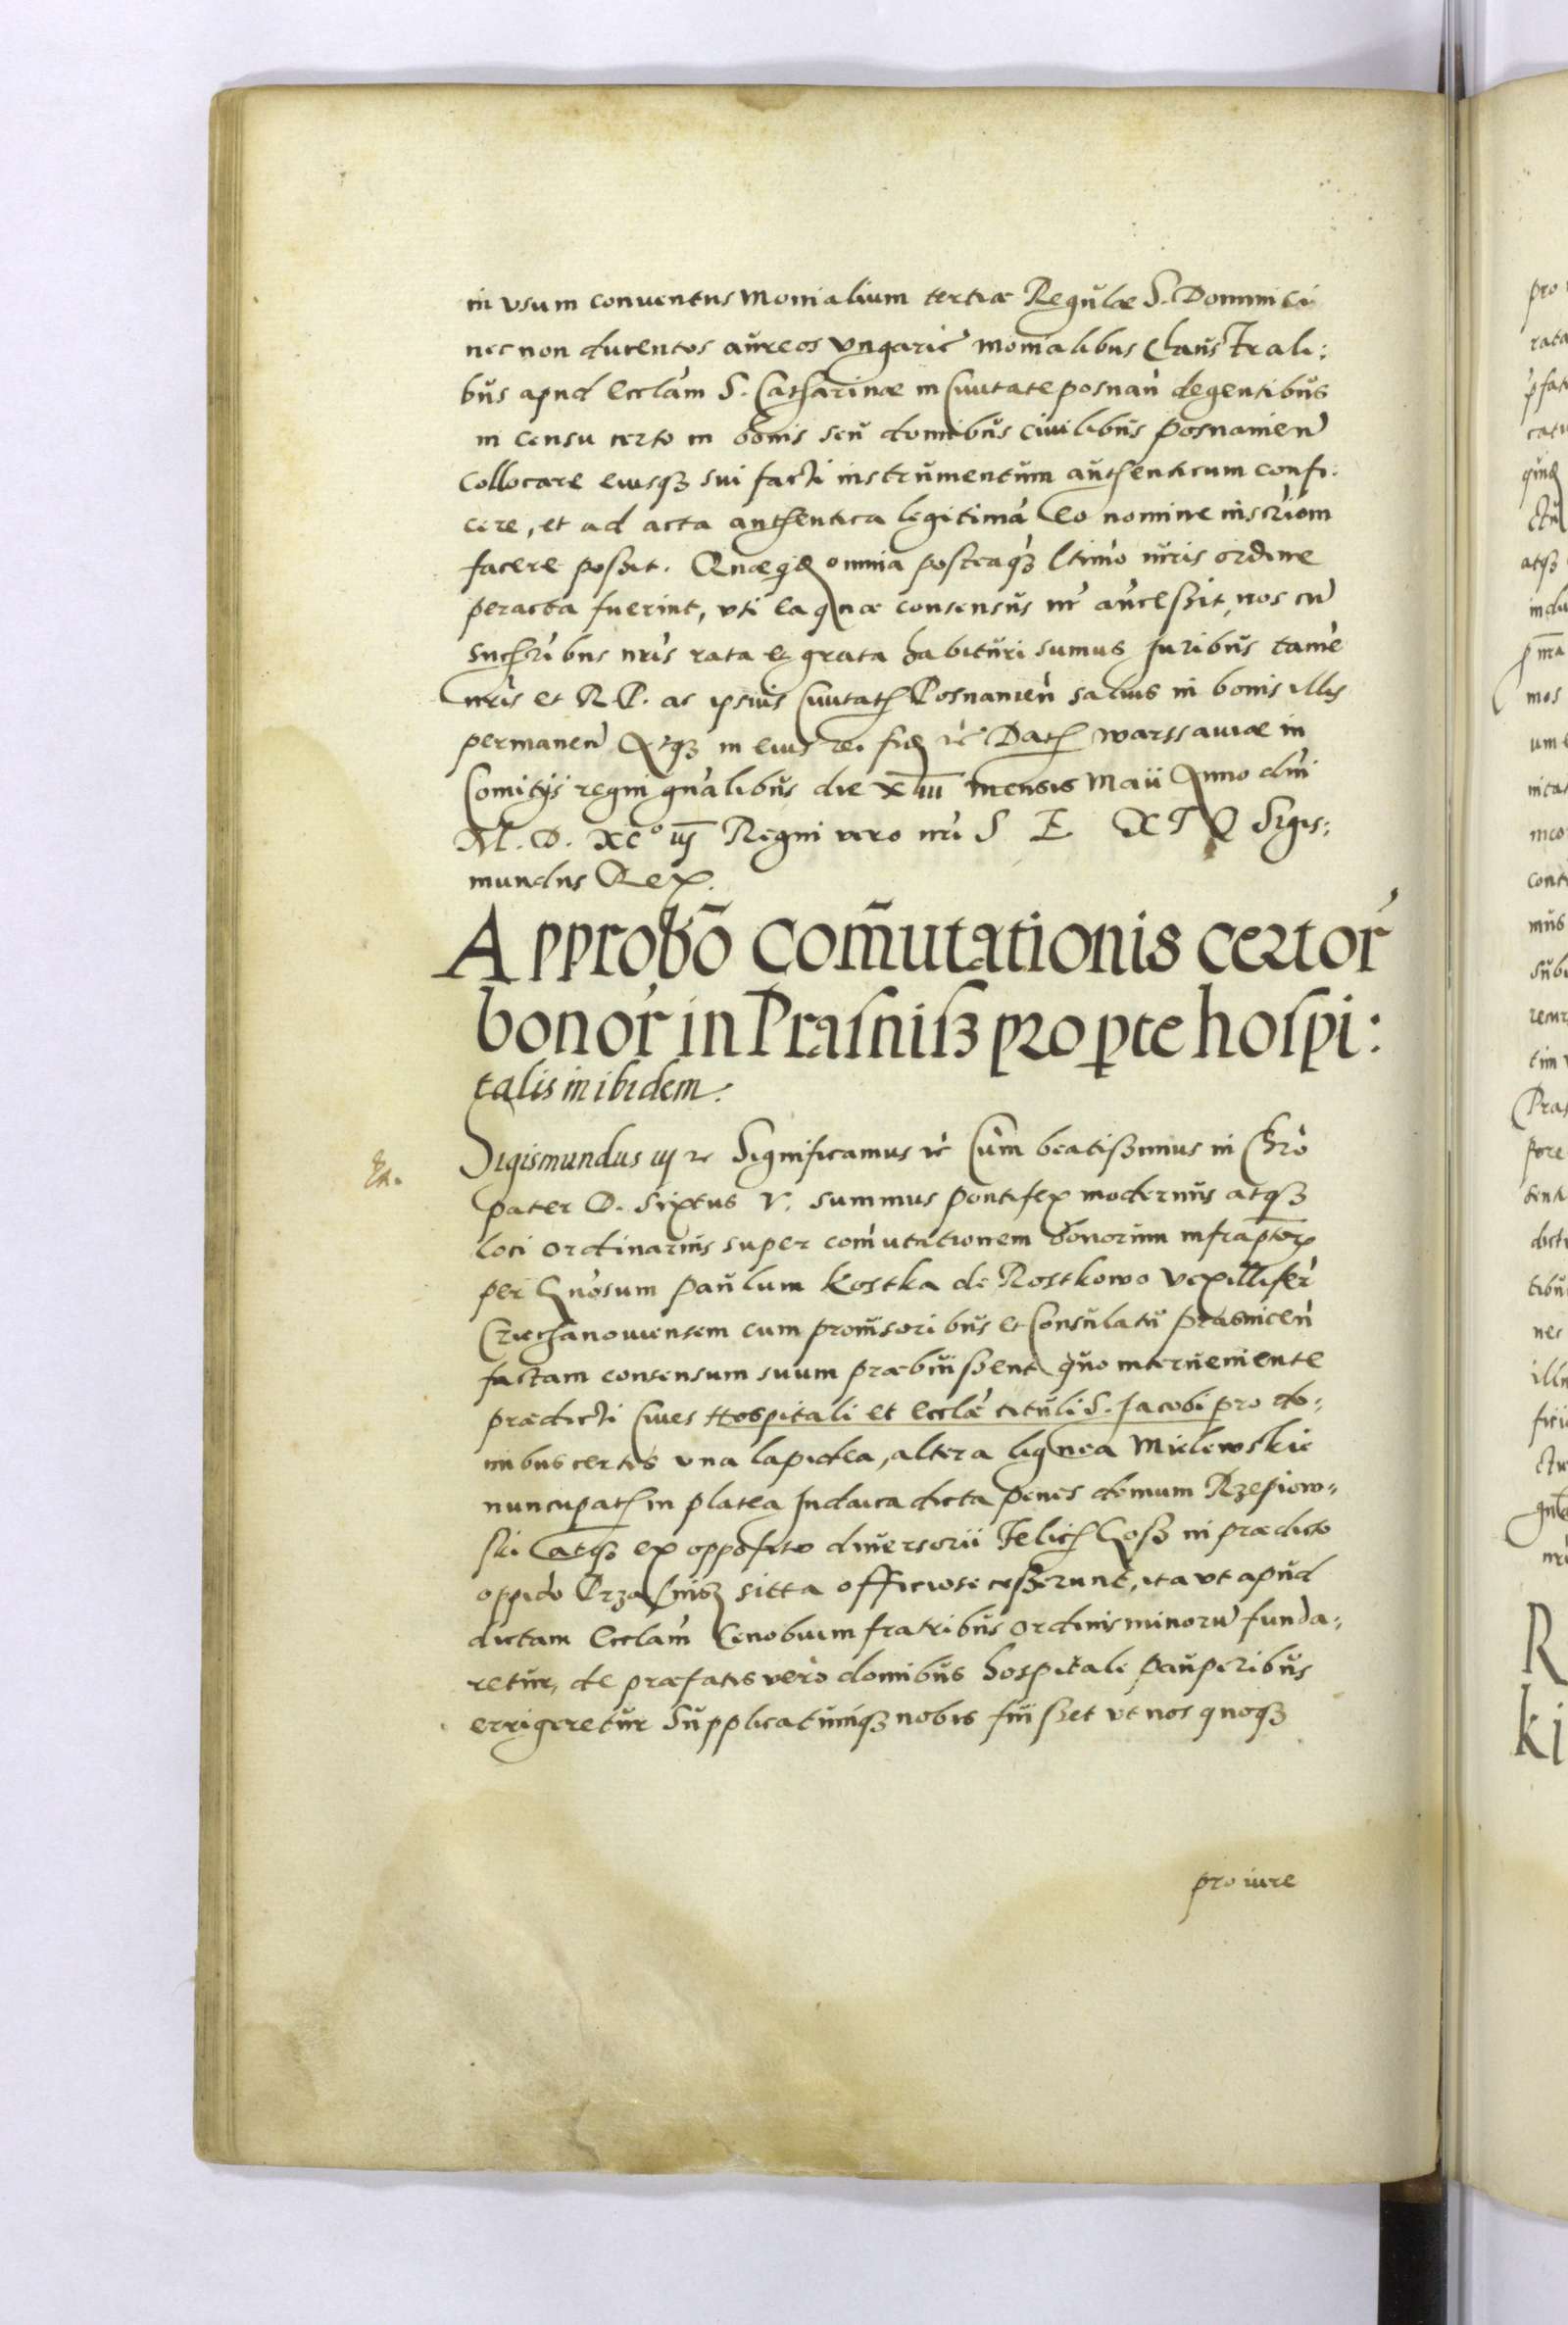 in vsum conuentus monialium tertiæ Regulæ S. Dominici
nec non ducentos aureos vngaric̃ monialibus Claustrali:
bus apud Eccl̃am S. Catharinæ in Ciuitate posnan̄ degentibus
in censu certo in bonis seu domibus ciuilibus posnanien̄
collocare eiusqȝ sui facti instrumentum authenticum confi:
cere, et ad acta authentica legitimā eo nomine inscr̃iom
facere possit. Quæqȝ omnia posteaqȝ ltimo iuris ordine
peracta fuerint, vti ea quæ consensus nr̃ ancessit, nos cū
Succ̃ribus nr̃is rata et grata habituri sumus Juribus tamē
nr̃is et R P. ac ipsius Ciuitatis Posnanien̄ saluis in bonis illis
permanen̄ Atqȝ in eius rei fidē ꝛc̃ Datꝭ warssauiæ in
Comitijs regni gnālibus die xiii mensis Maii Anno dn̄i
M. D. XC° iij Regni vero nr̃i S E XTQ Sigis:
mundus Rex.
Approbō com̄utationis certor̃
bonor̃ in Prasnisȝ pro pte hospi:
talis inibidem.
Sigismundus iij ꝛc Significamus ꝛc̃ Cum beatissimus in Chr̃o
pater D. Sixtus V. summus pontifex modernus atqȝ
loci ordinarius super com̄utationem bonorum infraptorꝭ
per Gn̄osum Paulum Kostka de Rostkowo vexillifer̄
Cziechanouiensem cum prouisoribus et Consulatu prasnicen̄
factam consensum suum præbuissent quo interueniente
prædicti Ciues Hospitali et Eccl̃æ tituli S. Jacobi pro do:
mibus certis vna lapidea, altera lignea Mielewskie
nuncupatꝭ in platea Judaica dicta penes domum Rzepiow:
ski atqȝ ex opposito diuersorii Felicꝭ Gosȝ in prædicto
oppido Przasnisȝ sitta officiose cesserunt, ita vt apud
dictam Eccl̃am Cenobium fratribus ordinis minorū funda:
retur, de præfatis vero domibus hospitale pauperibus
errigeretur Supplicatumqȝ nobis fuisset vt nos quoqȝ
pro iure